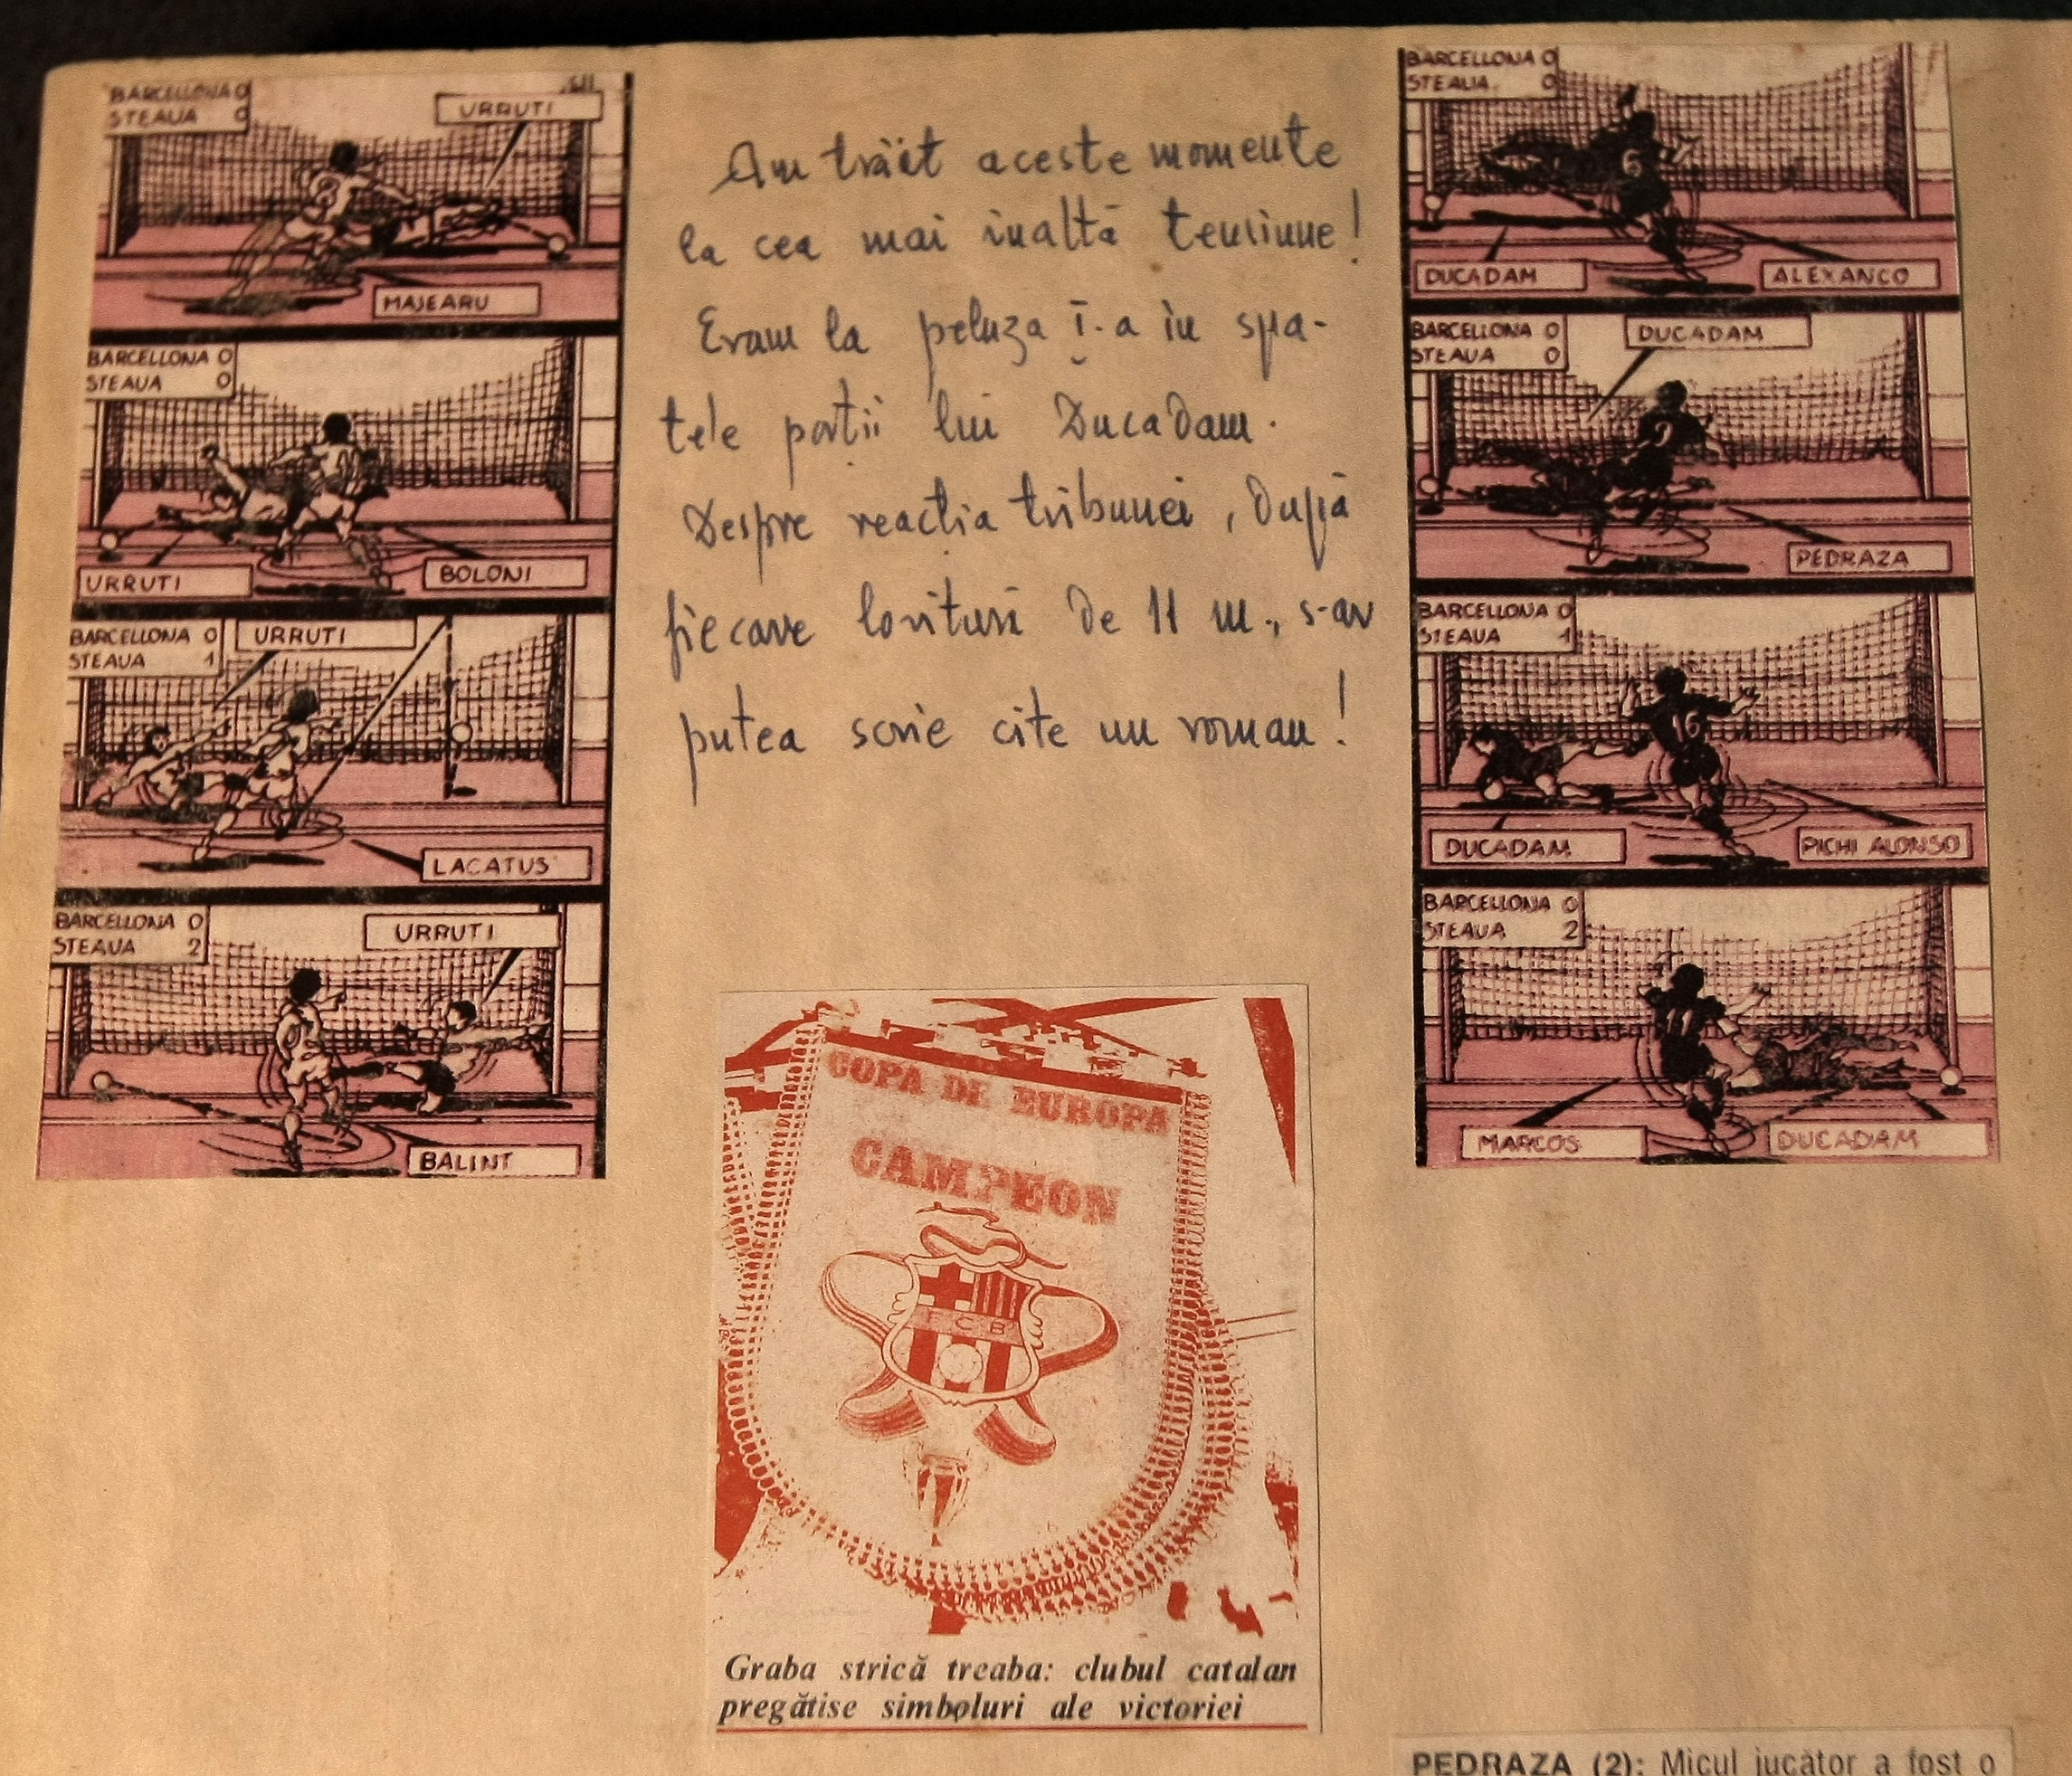 BARCELLONA 0
STEAUA 0
URRUTI
MAJEARU
BARCELLONA 0
STEAUA 0
URRUTI
BOLONI
BARCELLONA 0
STEAUA 1
URRUTI
LACATUS
BARCELLONA 0
STEAUA 2
URRUTI
BALINT
Am trăit aceste momente
la cea mai inaltă tensiune!
Eram la peluza I-a in spa-
tele porții lui Ducadam.
Despre reacția tribunei, după
fiecare lovituri de 11 m., s-ar
putea scrie cite un roman!
COPA DE EUROPA
CAMPEON
F C B
Graba strică treaba: clubul catalan
pregătise simboluri ale victoriei
BARCELLONA 0
STEAUA 0
6
DUCADAM
ALEXANCO
BARCELLONA 0
STEAUA 0
DUCADAM
9
PEDRAZA
BARCELLONA 0
STEAUA 1
16
DUCADAM
PICHI ALONSO
BARCELLONA 0
STEAUA 2
11
MARCOS
DUCADAM
PEDRAZA (2): Micul jucător a fost o